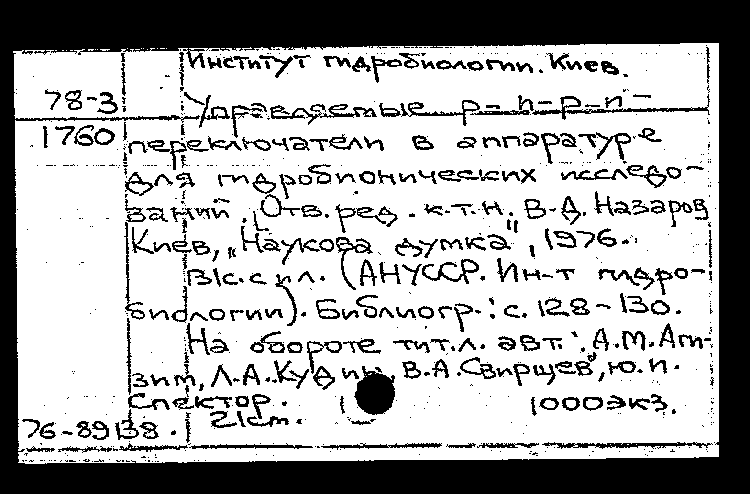 Институт гидробиологии. Киев.
78-3 Управляемые p-n-p-n-
1760 переключатели в аппаратуре
для гидробионических исследо-
ваний. [Отв. ред. к.т.н. В.Д. Назаров
Киев, „Наукова думка", 1976.
131с. с ил. (АН УССР. Ин-т гидро-
биологии). Библиогр.: с. 128-130.
На обороте тит. л. авт.: А.М. Аги-
зим, Л.А. Кудин, В.А. Свирщев, Ю.И.
Спектор.
21 см. 1000 экз.
76-89138.